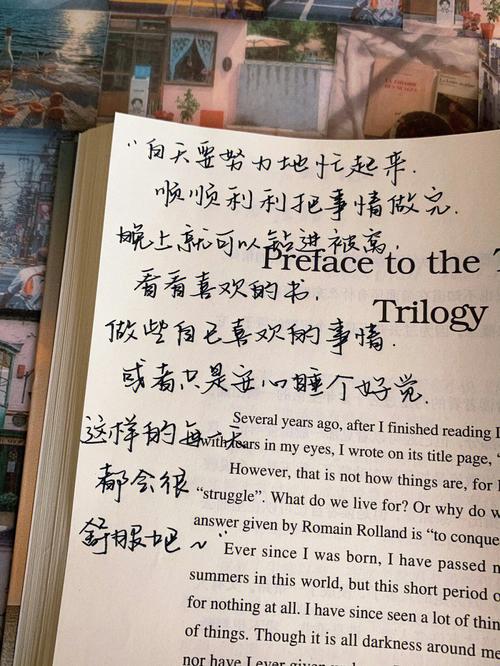 "白天要努力地忙起来.
顺顺利利把事情做完.
晚上就可以钻进被窝,
Preface to the T
看看喜欢的书.
Trilogy
做些自己喜欢的事情.
或者只是安心睡个好觉.
这样的每一天
Several years ago, after I finished reading
with tears in my eyes, I wrote on its title page, "
都会很
However, that is not how things are, for I
"struggle". What do we live for? Or why do w
answer given by Romain Rolland is "to conque
舒服吧~"
Ever since I was born, I have passed n
summers in this world, but this short period o
for nothing at all. I have since seen a lot of thin
of things. Though it is all darkness around me
nor have I ever given